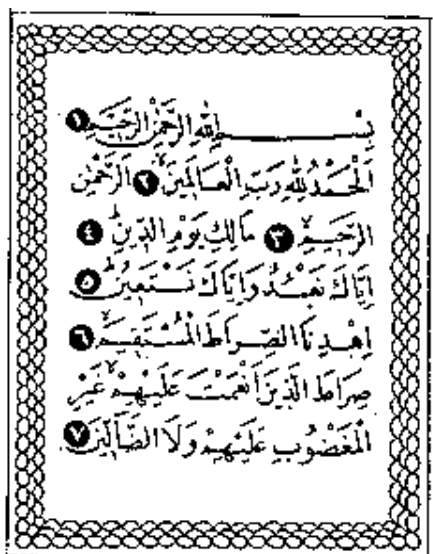 بِسْــــــمِ اللهِ الرَّحْمٰنِ الرَّحِيمِ ١
اَلْحَمْدُ لِلّٰهِ رَبِّ الْعَالَمِينَ ٢ اَلرَّحْمٰنِ
الرَّحِيمِ ٣ مَالِكِ يَوْمِ الدِّينِ ٤
اِيَّاكَ نَعْبُدُ وَاِيَّاكَ نَسْتَعِينُ ٥
اِهْدِنَا الصِّرَاطَ الْمُسْتَقِيمَ ٦
صِرَاطَ الَّذِينَ اَنْعَمْتَ عَلَيْهِمْ غَيْرِ
الْمَغْضُوبِ عَلَيْهِمْ وَلَا الضَّالِّينَ ٧